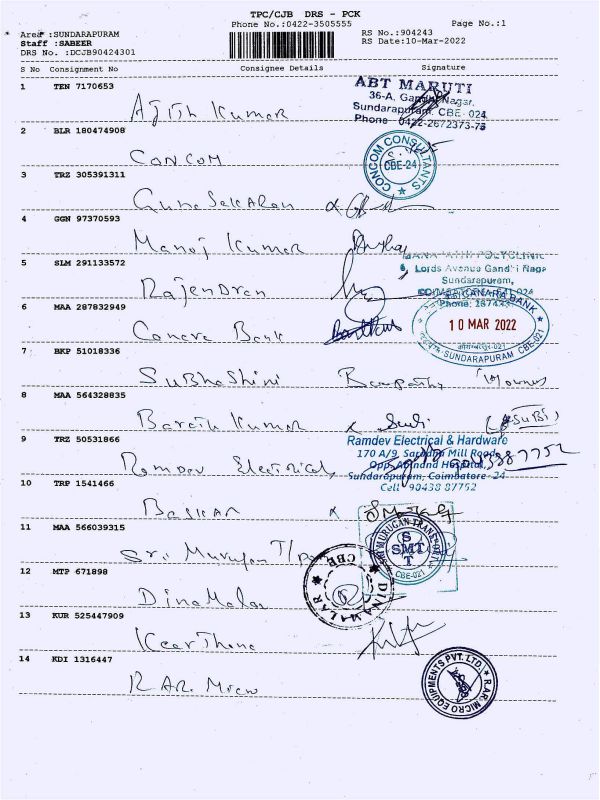 TPC/CJB DRS - PCK
Phone No.:0422-3505555 Page No.:1
* Area :SUNDARAPURAM RS No.:904243
Staff :SABEER RS Date:10-Mar-2022
DRS No. :DCJB90424301
S No Consignment No Consignee Details Signature
1 TEN 7170653
Ajith Kumar
ABT MARUTI
36-A, Gandhi Nagar,
Sundarapuram, CBE-024
Phone 0422-2672373-75
2 BLR 180474908
CONCOM
CONCOM CONSULTANTS
CBE-24
3 TRZ 305391311
Gunasekaran
4 GGN 97370593
Manoj Kumar
5 SLM 291133572
Rajendran
POLYCLINIC
6, Lords Avenue Gandhi Naga
Sundarapuram,
6 MAA 287832949
Canara Bank
CANARA BANK
10 MAR 2022
SUNDARAPURAM CBE-021
7 BKP 51018336
Subhashini
8 MAA 564328835
Kumar
(SuBi)
9 TRZ 50531866
Ramdev Electrical
Ramdev Electrical & Hardware
170 A/9, Sarada Mill Road,
Sundarapuram, Coimbatore-24
Cell 90438 87752
9043887752
10 TRP 1541466
Baskar
11 MAA 566039315
Sri Murugan T/p
MURUGAN TRANSPORT
SMT
CBE-021
12 MTP 671898
Dinamalar
DINAMALAR
CBE
13 KUR 525447909
Keerthana
14 KDI 1316447
R.AR. Micro
R.AR. MICRO EQUIPMENTS PVT. LTD.